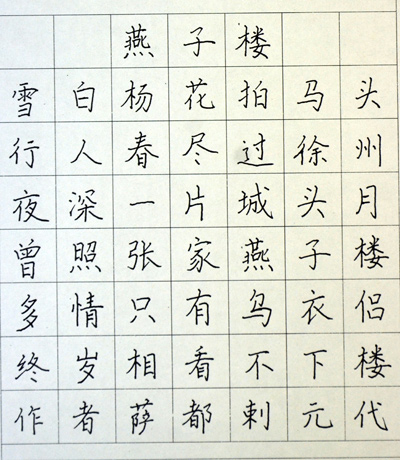 燕子楼
雪白杨花拍马头
行人春尽过徐州
夜深一片城头月
曾照张家燕子楼
多情只有乌衣侣
终岁相看不下楼
作者萨都剌元代